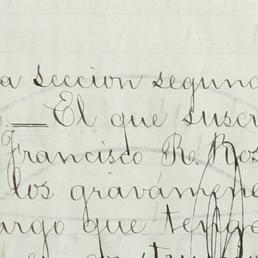 a seccion segund
El que suscr
Francisco R. Ros
los gravámene
argo que tenga